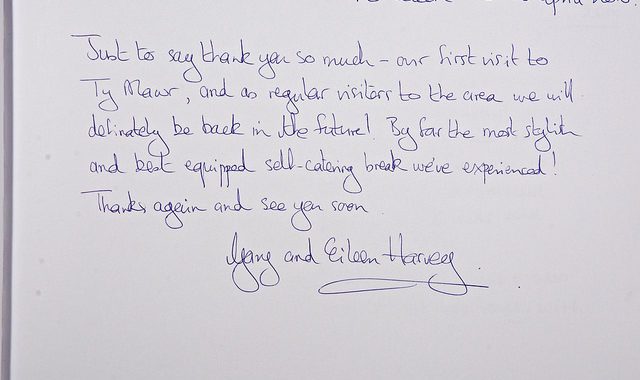 Just to say thank you so much - our first visit to
Ty Mawr, and as regular visitors to the area we will
definately be back in the future! By far the most stylish
and best equipped self-catering break we've experienced!
Thanks again and see you soon
and Eileen Harvey